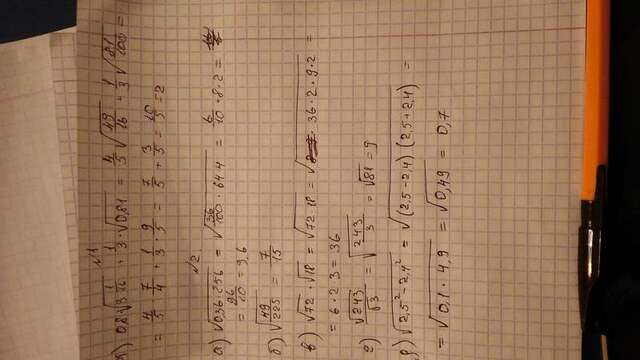 №1
а) 0,8√(3 1/16) + 1/3 · √0,81 = 4/5 √(49/16) + 1/3 √(81/100) =
= 4/5 · 7/4 + 1/3 · 9/5 = 7/5 + 3/5 = 10/5 = 2
№2
а) √(0,36 · 256) = √(36/100 · 64 · 4) = 6/10 · 8 · 2 =
= 96/10 = 9,6
б) √(49/225) = 7/15
в) √72 · √18 = √(72 · 18) = √(36 · 2 · 9 · 2) =
= 6 · 2 · 3 = 36
г) √243/√3 = √(243/3) = √81 = 9
д) √(2,5² - 2,4²) = √((2,5 - 2,4) (2,5 + 2,4)) =
= √(0,1 · 4,9) = √0,49 = 0,7